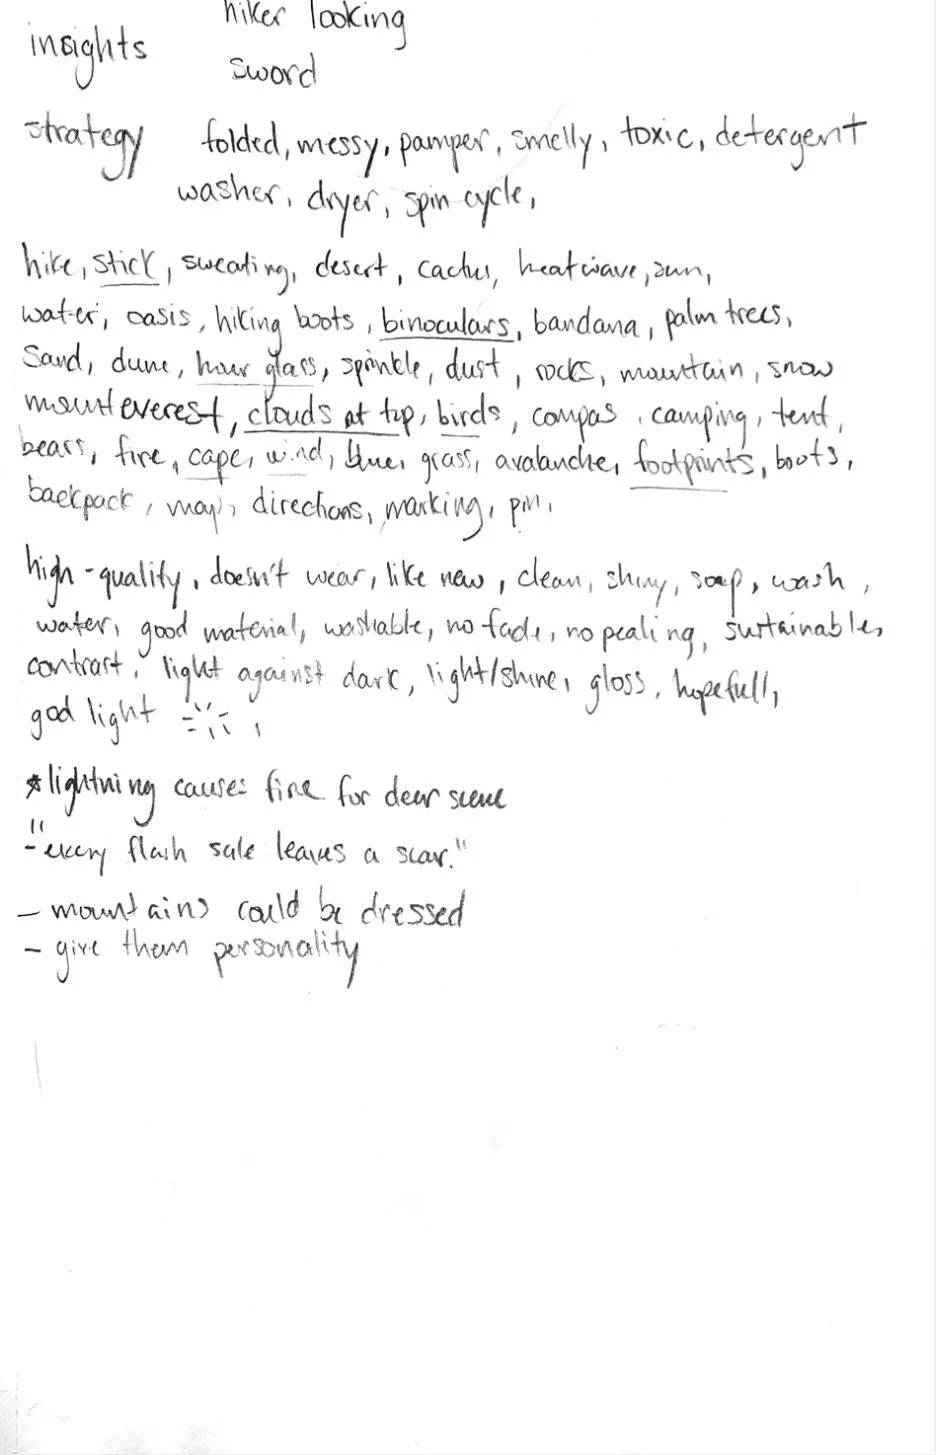 hiker looking
insights
sword
strategy folded, messy, pamper, smelly, toxic, detergent
washer, dryer, spin cycle,
hike, stick, sweating, desert, cactus, heatwave, sun,
water, oasis, hiking boots, binoculars, bandana, palm trees,
Sand, dune, hour glass, sprinkle, dust, rocks, mountain, snow
mount everest, clouds at top, birds, compas, camping, tent,
bears, fire, cape, wind, blue, grass, avalanche, footprints, boots,
backpack, map, directions, marking, pin,
high-quality, doesn't wear, like new, clean, shiny, soap, wash,
water, good material, washable, no fade, no pealing, sustainable,
contrast, light against dark, light/shine, gloss, hopefull,
god light ,
* lightning causes fire for deer scene
- "every flash sale leaves a scar."
- mountains could be dressed
- give them personality